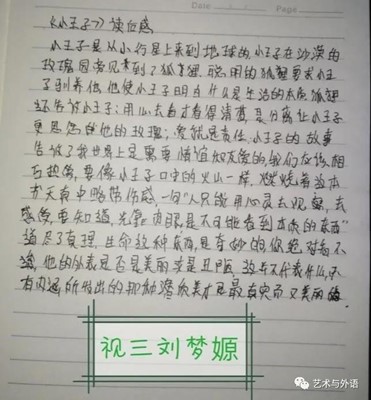 Date: Page:
《小王子》读后感
小王子是从小行星上来到地球的,小王子在沙漠的
玫瑰园常见看到了狐狸,聪明的狐狸要求小王
子驯养他,他使小王子明白什么是生活的本质,狐狸
还告诉小王子:用心去看才看得清楚,是分离让小王子
更思念他的玫瑰;爱就是责任,小王子的故事
告诉了我世界上是需要情谊和友爱的,我们应该相
互热爱,要像小王子口中的火山一样,燃烧着 这本
书天真中略带伤感,一句“人只能用心灵去观察,去
感受,要知道,光靠肉眼是不可能看到本质的东西”
道尽了真理,生命这种东西,是奇妙的你绝对看不
他的外表是否是美丽或是丑陋,这并不代表什么,只
有内涵所付出的那份潜质美才是最真实而又美丽的
视三刘梦嫄
艺术与外语